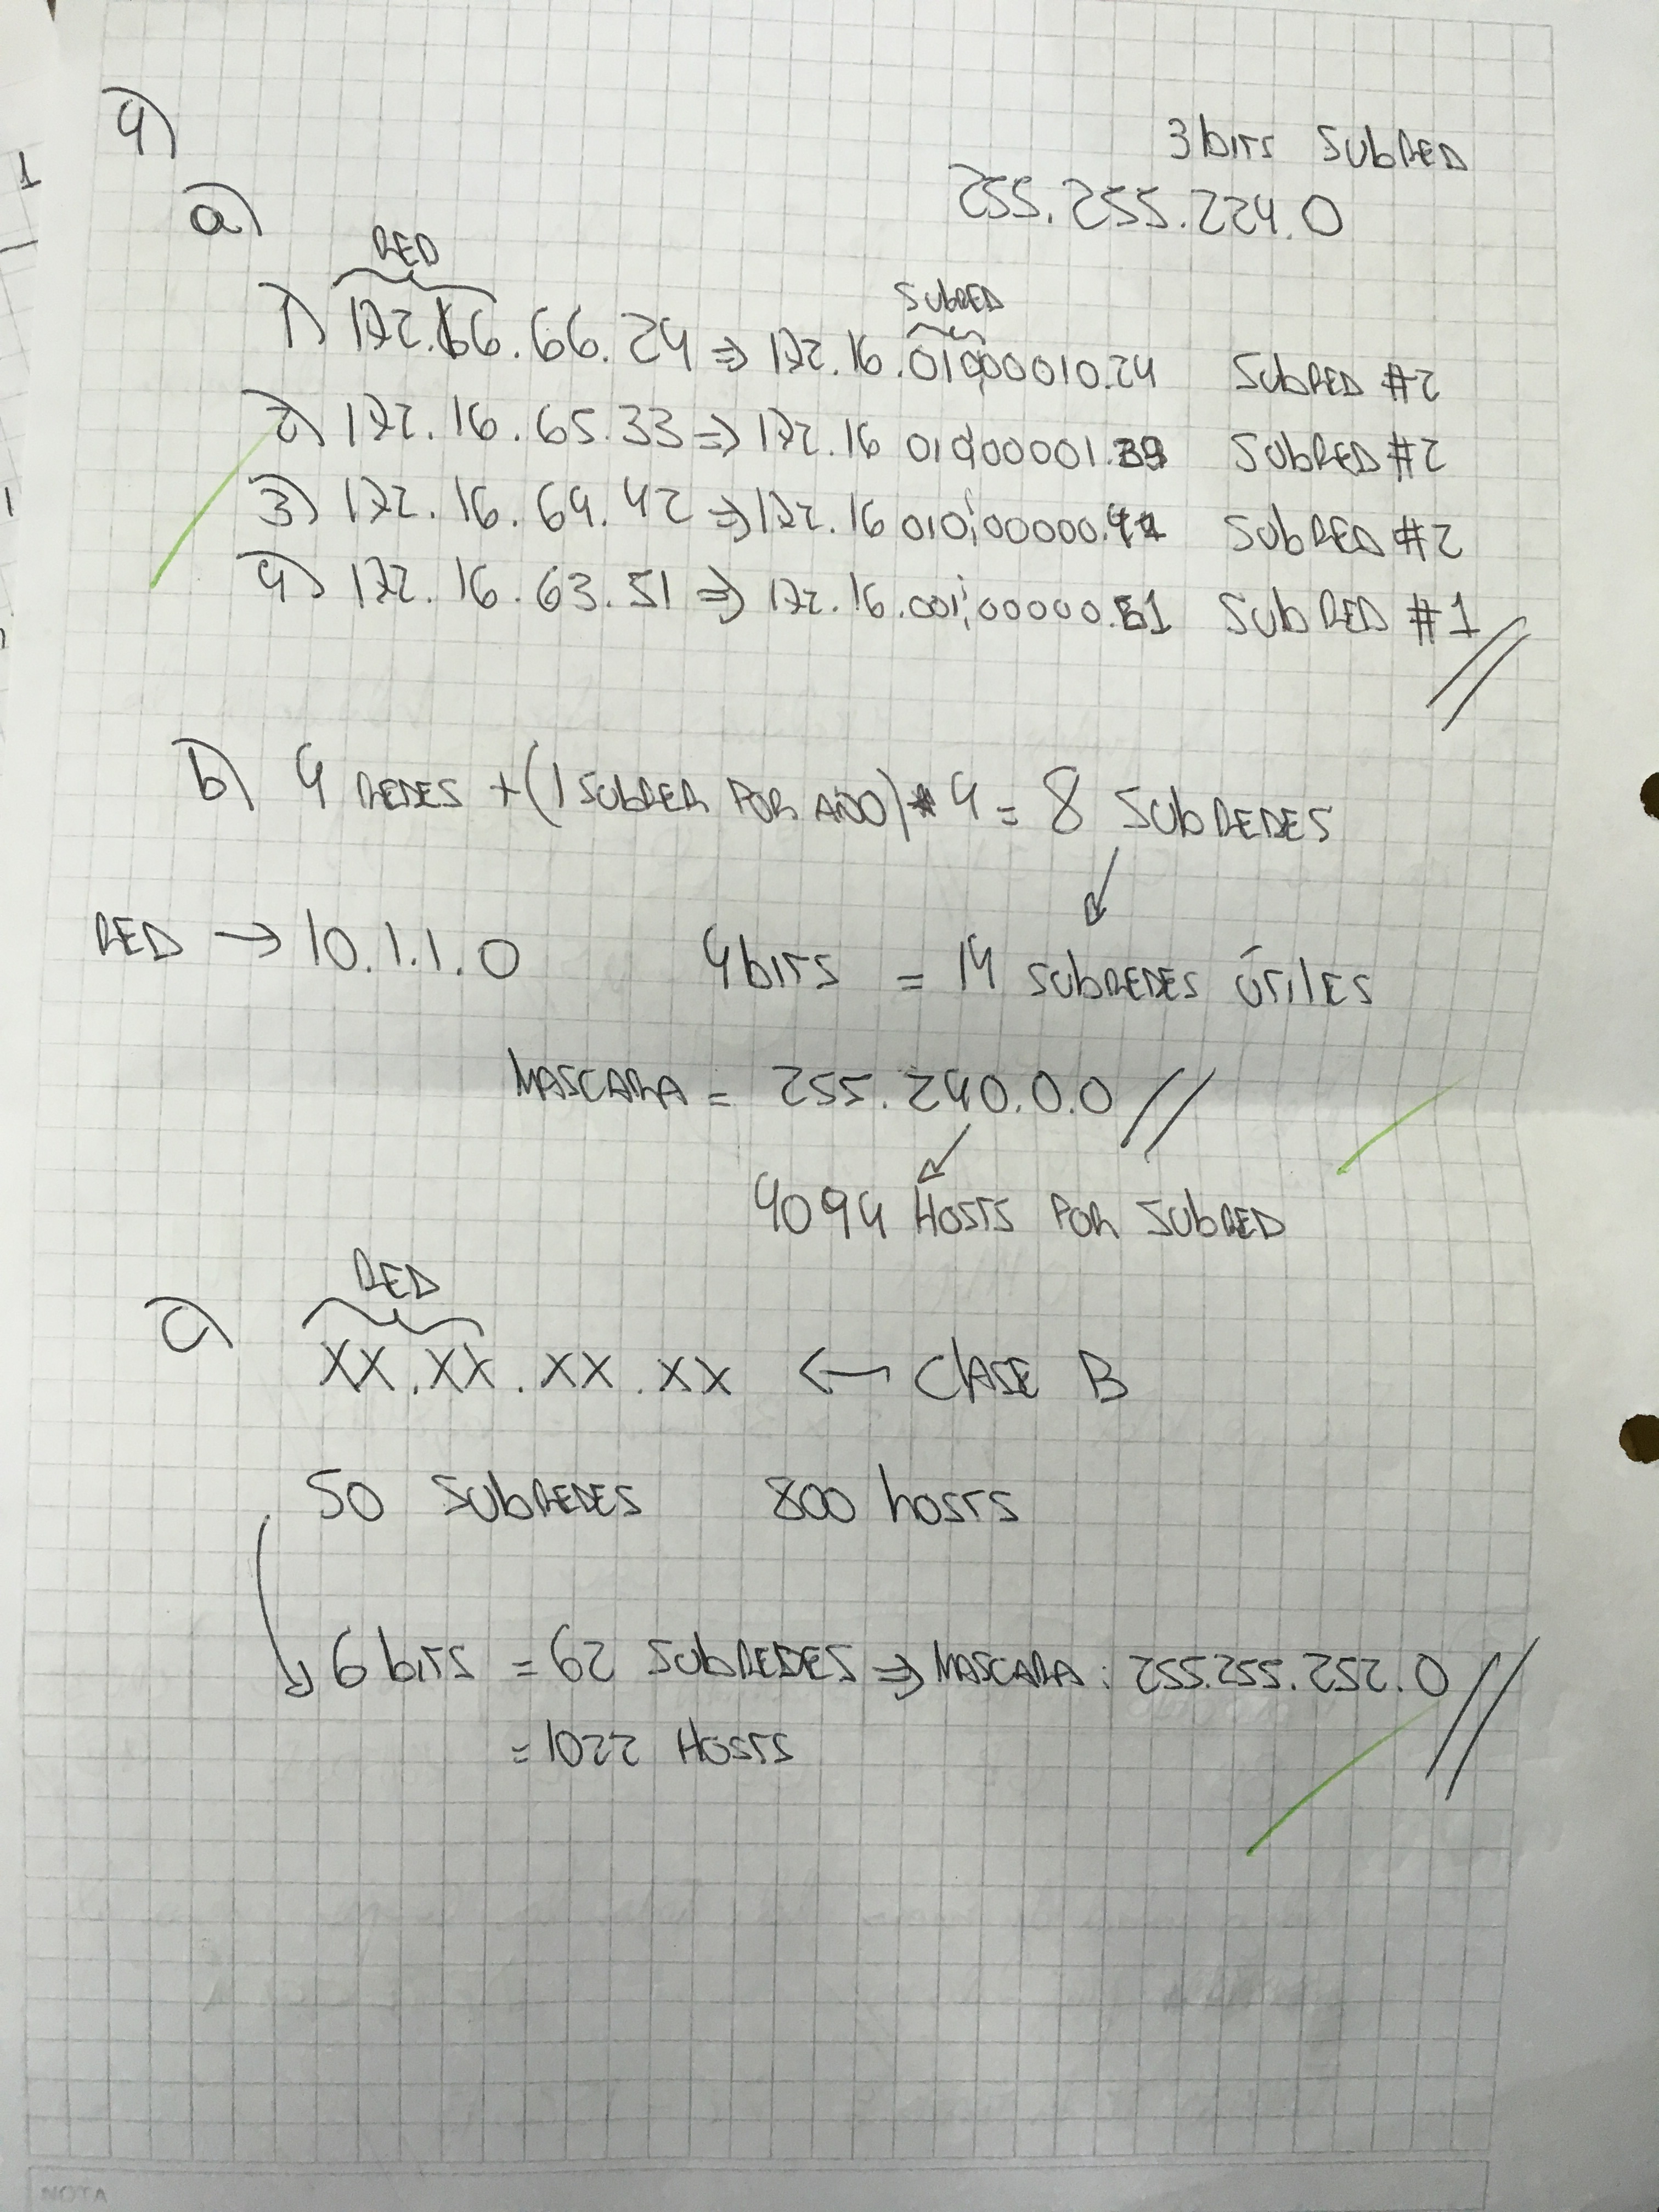 4)
3 bits SubRED
255.255.224.0
a)
RED
SubRED
1) 172.16.66.24 => 172.16.01000010.24 SubRED #2
2) 172.16.65.33 => 172.16 01000001.33 SubRED #2
3) 172.16.64.42 => 172.16 010,00000.42 SubRED #2
4) 172.16.63.51 => 172.16.001,00000.51 SubRED #1
b) 4 REDES + (1 SUBRER POR AÑO) * 4 = 8 SubREDES
RED → 10.1.1.0 4 bits = 14 SUbREDES ÚTILES
MASCARA = 255.240.0.0
4094 HOSTS POR SUbRED
RED
c) XX.XX.XX.XX ← CLASE B
50 SUbREDES 800 hosts
6 bits = 62 SUbREDES => MASCARA: 255.255.252.0
= 1022 HOSTS
NOTA